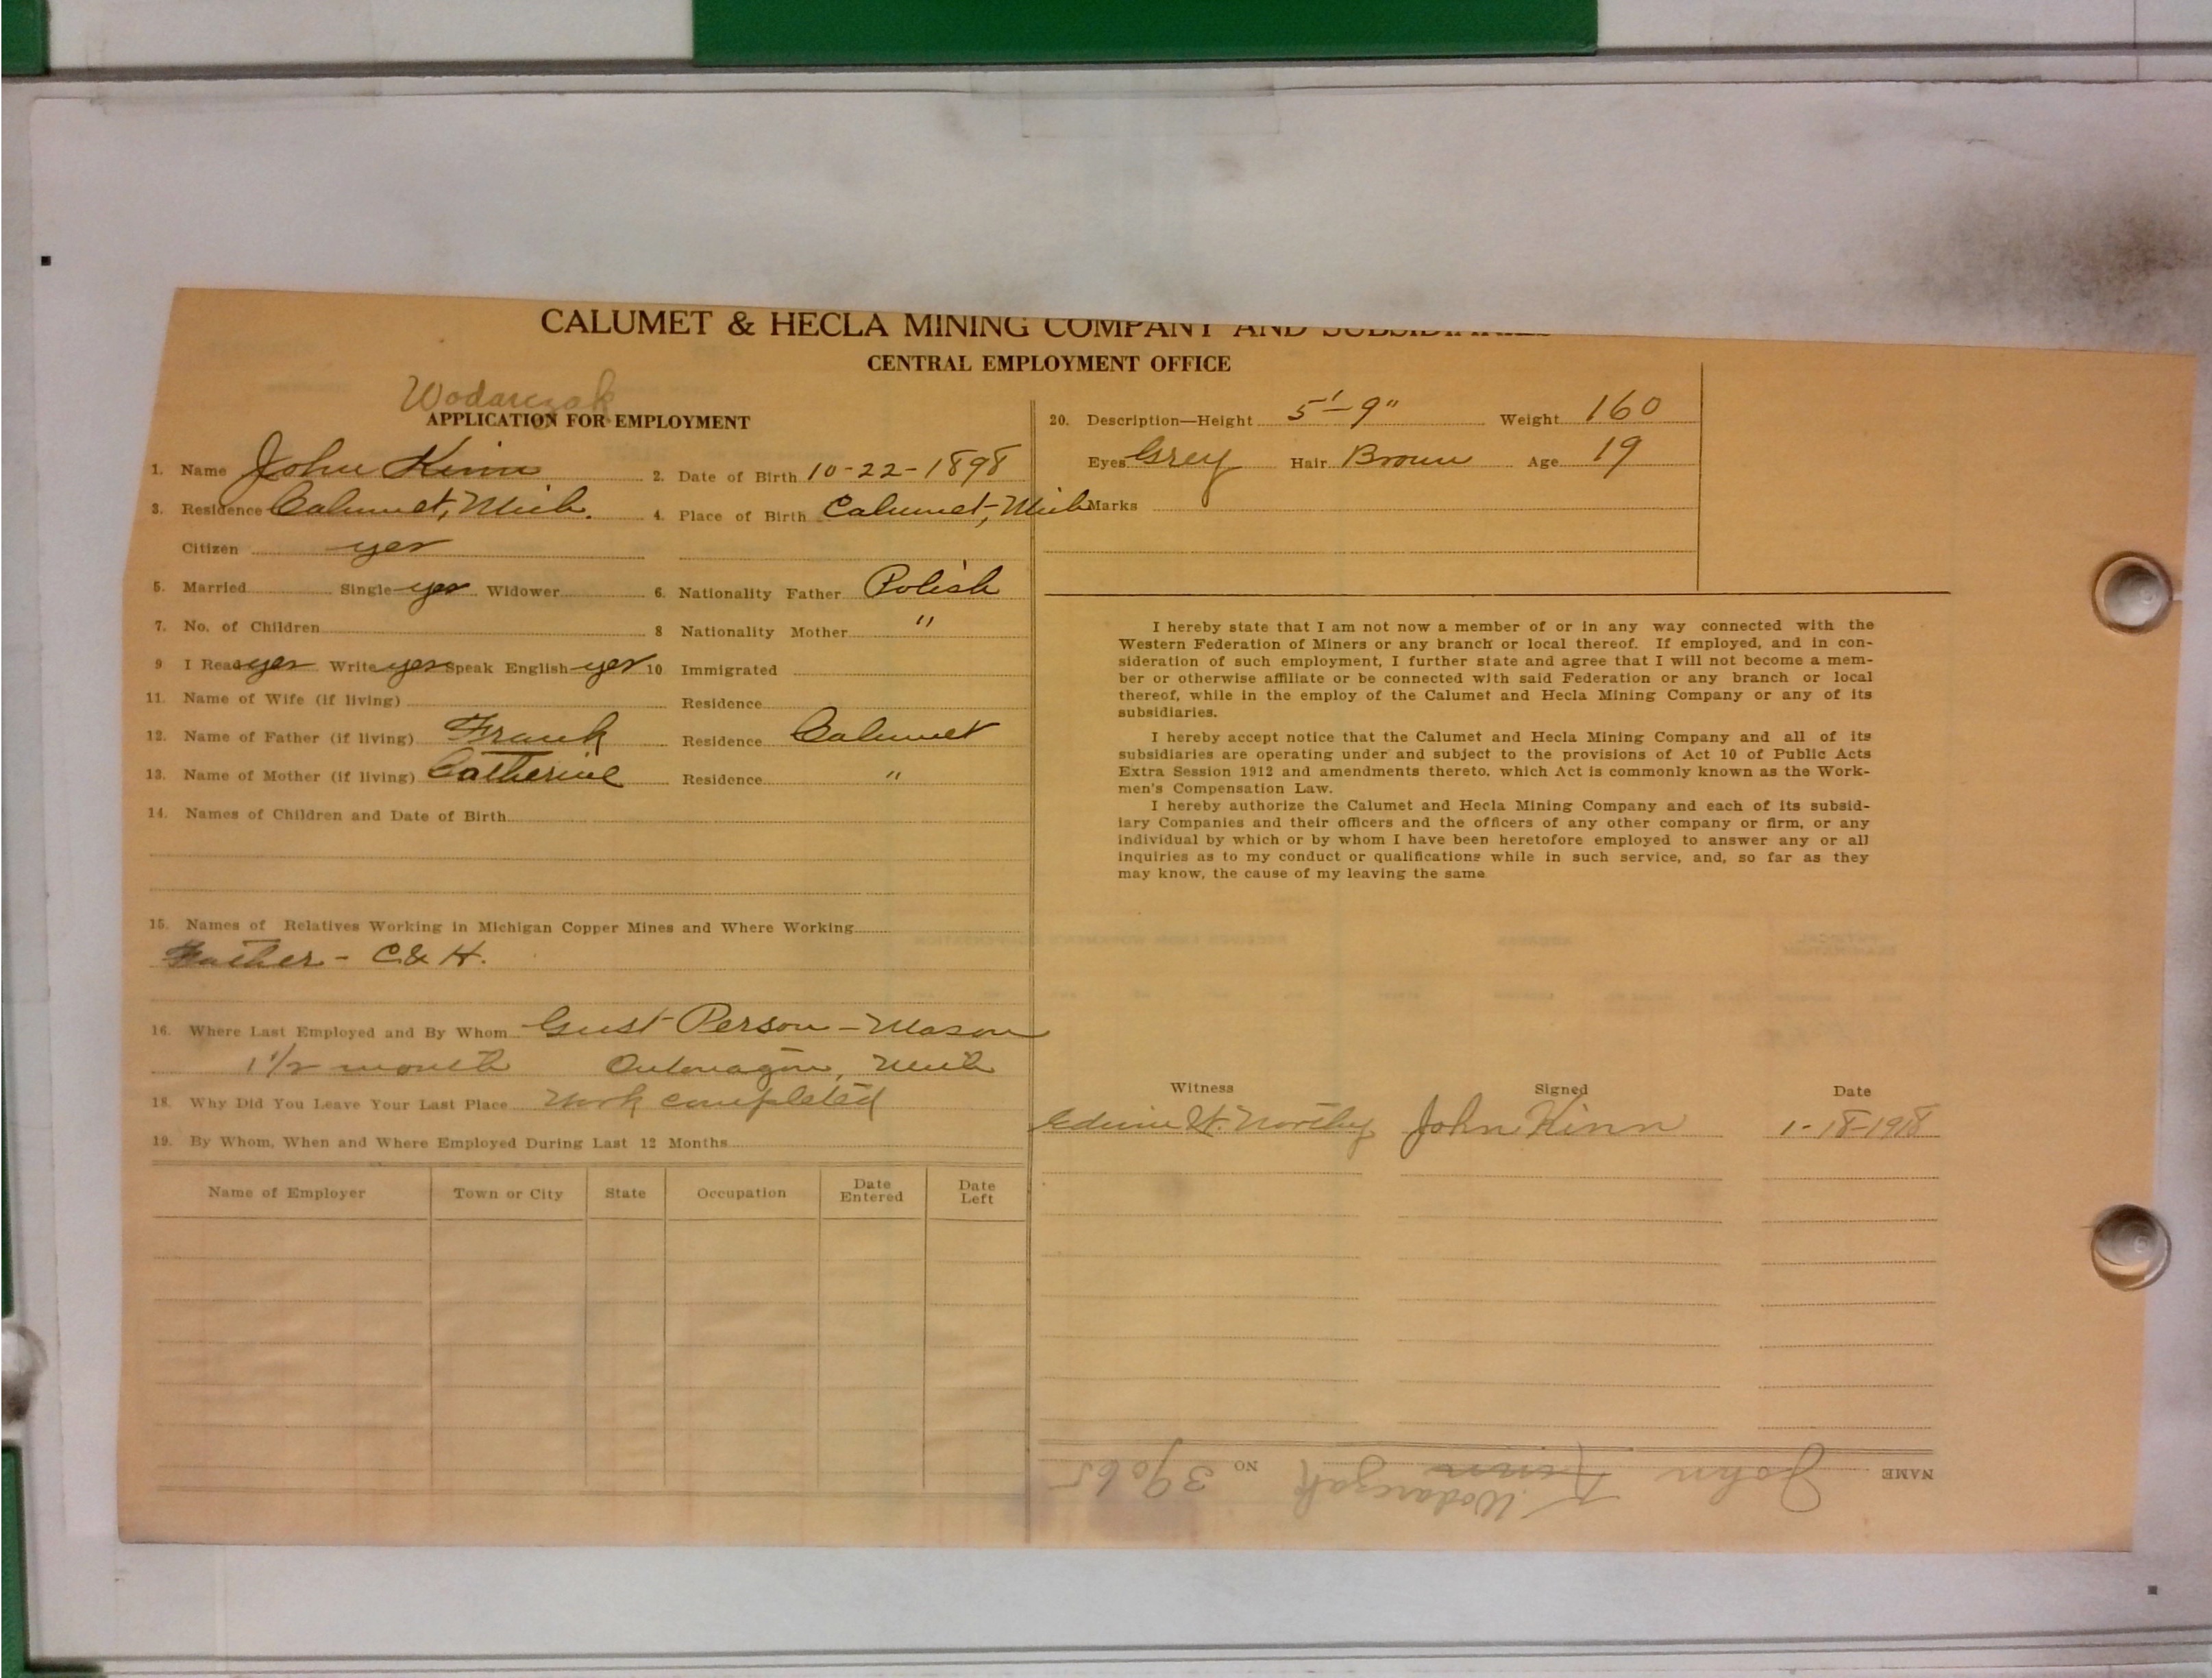 CALUMET & HECLA MINING COMPANY AND SUBSIDIARIES
CENTRAL EMPLOYMENT OFFICE
Wodarczak
APPLICATION FOR EMPLOYMENT
1. Name John Kinn 2. Date of Birth 10-22-1898
3. Residence Calumet, Mich. 4. Place of Birth Calumet, Mich
Citizen yes
5. Married Single yes Widower 6. Nationality Father Polish
7. No. of Children 8 Nationality Mother "
9 I Read yes Write yes Speak English yes 10 Immigrated
11. Name of Wife (if living) Residence
12. Name of Father (if living) Frank Residence Calumet
13. Name of Mother (if living) Catherine Residence "
14. Names of Children and Date of Birth
15. Names of Relatives Working in Michigan Copper Mines and Where Working
Father - C & H.
16. Where Last Employed and By Whom Gust Person - Mason
1 1/2 month Ontonagon, Mich
18. Why Did You Leave Your Last Place Work completed
19. By Whom, When and Where Employed During Last 12 Months
Name of Employer Town or City State Occupation Date Entered Date Left
20. Description—Height 5'-9" Weight 160
Eyes Grey Hair Brown Age 19
Marks
I hereby state that I am not now a member of or in any way connected with the
Western Federation of Miners or any branch or local thereof. If employed, and in con-
sideration of such employment, I further state and agree that I will not become a mem-
ber or otherwise affiliate or be connected with said Federation or any branch or local
thereof, while in the employ of the Calumet and Hecla Mining Company or any of its
subsidiaries.
I hereby accept notice that the Calumet and Hecla Mining Company and all of its
subsidiaries are operating under and subject to the provisions of Act 10 of Public Acts
Extra Session 1912 and amendments thereto, which Act is commonly known as the Work-
men's Compensation Law.
I hereby authorize the Calumet and Hecla Mining Company and each of its subsid-
iary Companies and their officers and the officers of any other company or firm, or any
individual by which or by whom I have been heretofore employed to answer any or all
inquiries as to my conduct or qualifications while in such service, and, so far as they
may know, the cause of my leaving the same
Witness Signed Date
Edwin W. John Kinn 1-18-1918
NAME John Kinn NO 39065
Wodarczak